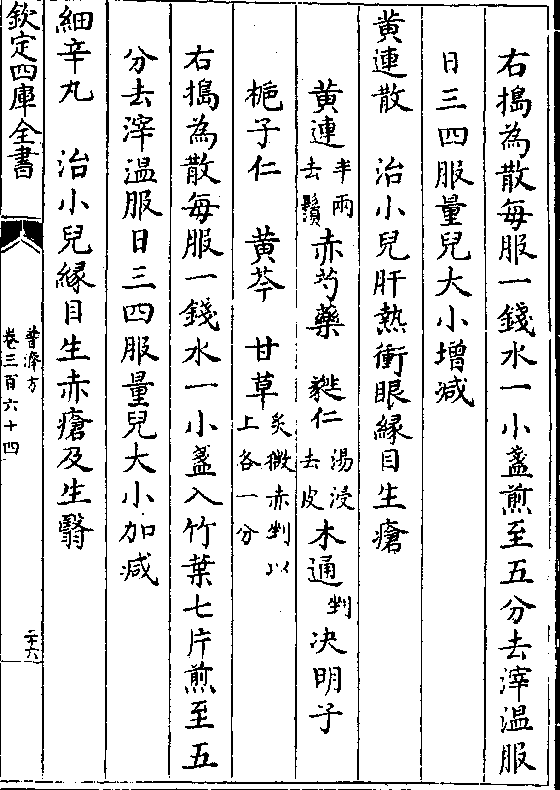 右搗為散每服一錢水一小盞煎至五分去滓温服
日三四服量兒大小增減
黄連散　治小兒肝熱衝眼緣目生瘡
黄連半兩去鬚赤芍藥　蕤仁湯浸去皮木通剉决明子
梔子仁　黄芩　甘草炙微赤剉以上各一分
右搗為散每服一錢水一小盞入竹葉七片煎至五
分去滓温服日三四服量兒大小加減
細辛丸　治小兒緣目生赤瘡及生翳
欽定四庫全書
普濟方
卷三百六十四
二十六